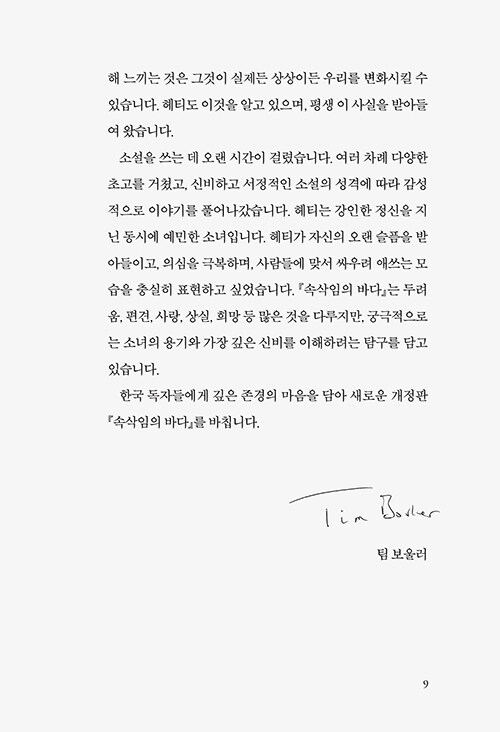 해 느끼는 것은 그것이 실제든 상상이든 우리를 변화시킬 수
있습니다. 헤티도 이것을 알고 있으며, 평생 이 사실을 받아들
여 왔습니다.
소설을 쓰는 데 오랜 시간이 걸렸습니다. 여러 차례 다양한
초고를 거쳤고, 신비하고 서정적인 소설의 성격에 따라 감성
적으로 이야기를 풀어나갔습니다. 헤티는 강인한 정신을 지
닌 동시에 예민한 소녀입니다. 헤티가 자신의 오랜 슬픔을 받
아들이고, 의심을 극복하며, 사람들에 맞서 싸우려 애쓰는 모
습을 충실히 표현하고 싶었습니다. 『속삭임의 바다』는 두려
움, 편견, 사랑, 상실, 희망 등 많은 것을 다루지만, 궁극적으로
는 소녀의 용기와 가장 깊은 신비를 이해하려는 탐구를 담고
있습니다.
한국 독자들에게 깊은 존경의 마음을 담아 새로운 개정판
『속삭임의 바다』를 바칩니다.
Tim Bowler
팀 보울러
9